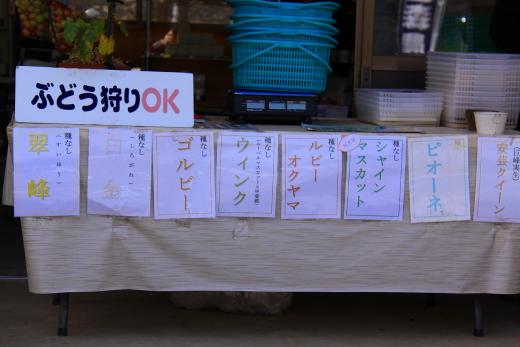 ぶどう狩りOK
種なし
翠峰
(すいほう)
種なし
白金
(しろがね)
種なし
ゴルビー
種なし
ウインク
種なし
ルビー
オクヤマ
種なし
シャイン
マスカット
ピオーネ
安芸クイーン